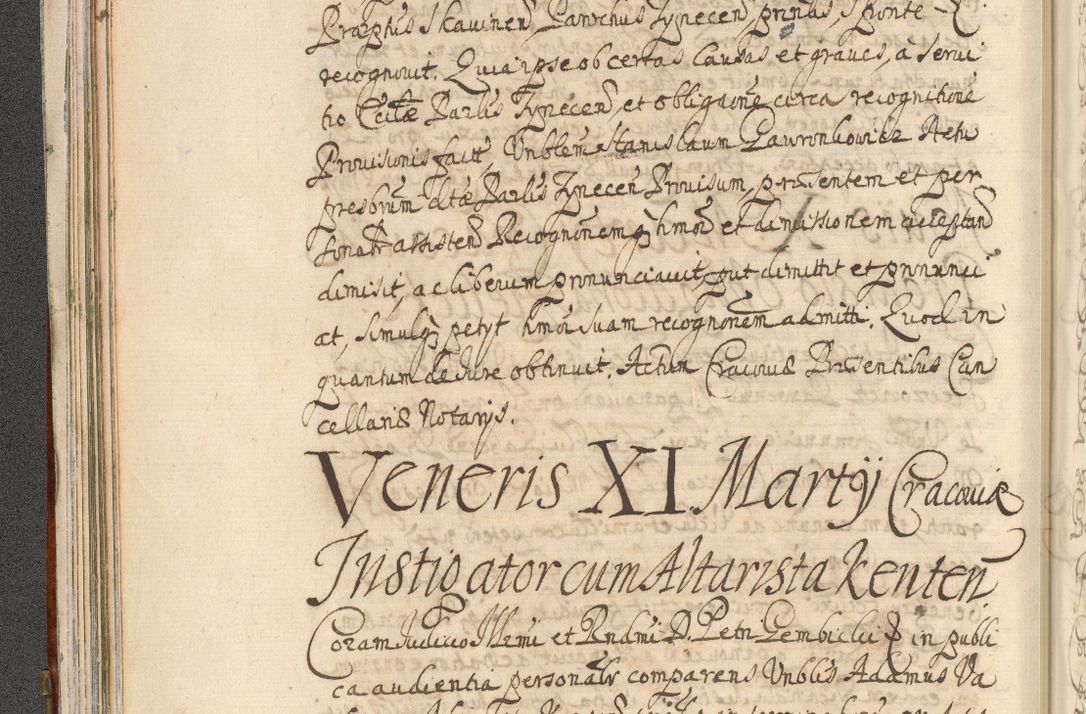 Præptus Skawinen, Parochus Tynecen, prinus, sponte &.
recognovit. Quia ipse ob certas causas et graves, a servi
tio Ecclæ Parlis Tynecen, et obligaone circa recognitione
Provisionis factt, Vnblem Stanislaum Gawronkowicz Actu
presbrum dtæ Parlis Tynecen Provisum, præsentem et per
sonalr assisten Recognonem hmon et dimissionem acceptan
dimisit, ac liberum pronunciavit, put dimittit et pronunci
at, simulq petyt hmoi suam recognonem admitti. Quod in
quantum de Jure obtinuit. Actum Cracoviæ Præsentibus Can
cellariæ Notarijs.
Veneris XI. Martij Cracoviæ
Instigator cum Altarista Kenten
Coram Judicio Illrmi et Rndmi D. Petri Gembicki & in publi
ca audientia personalr comparens Vnblis Adamus Va